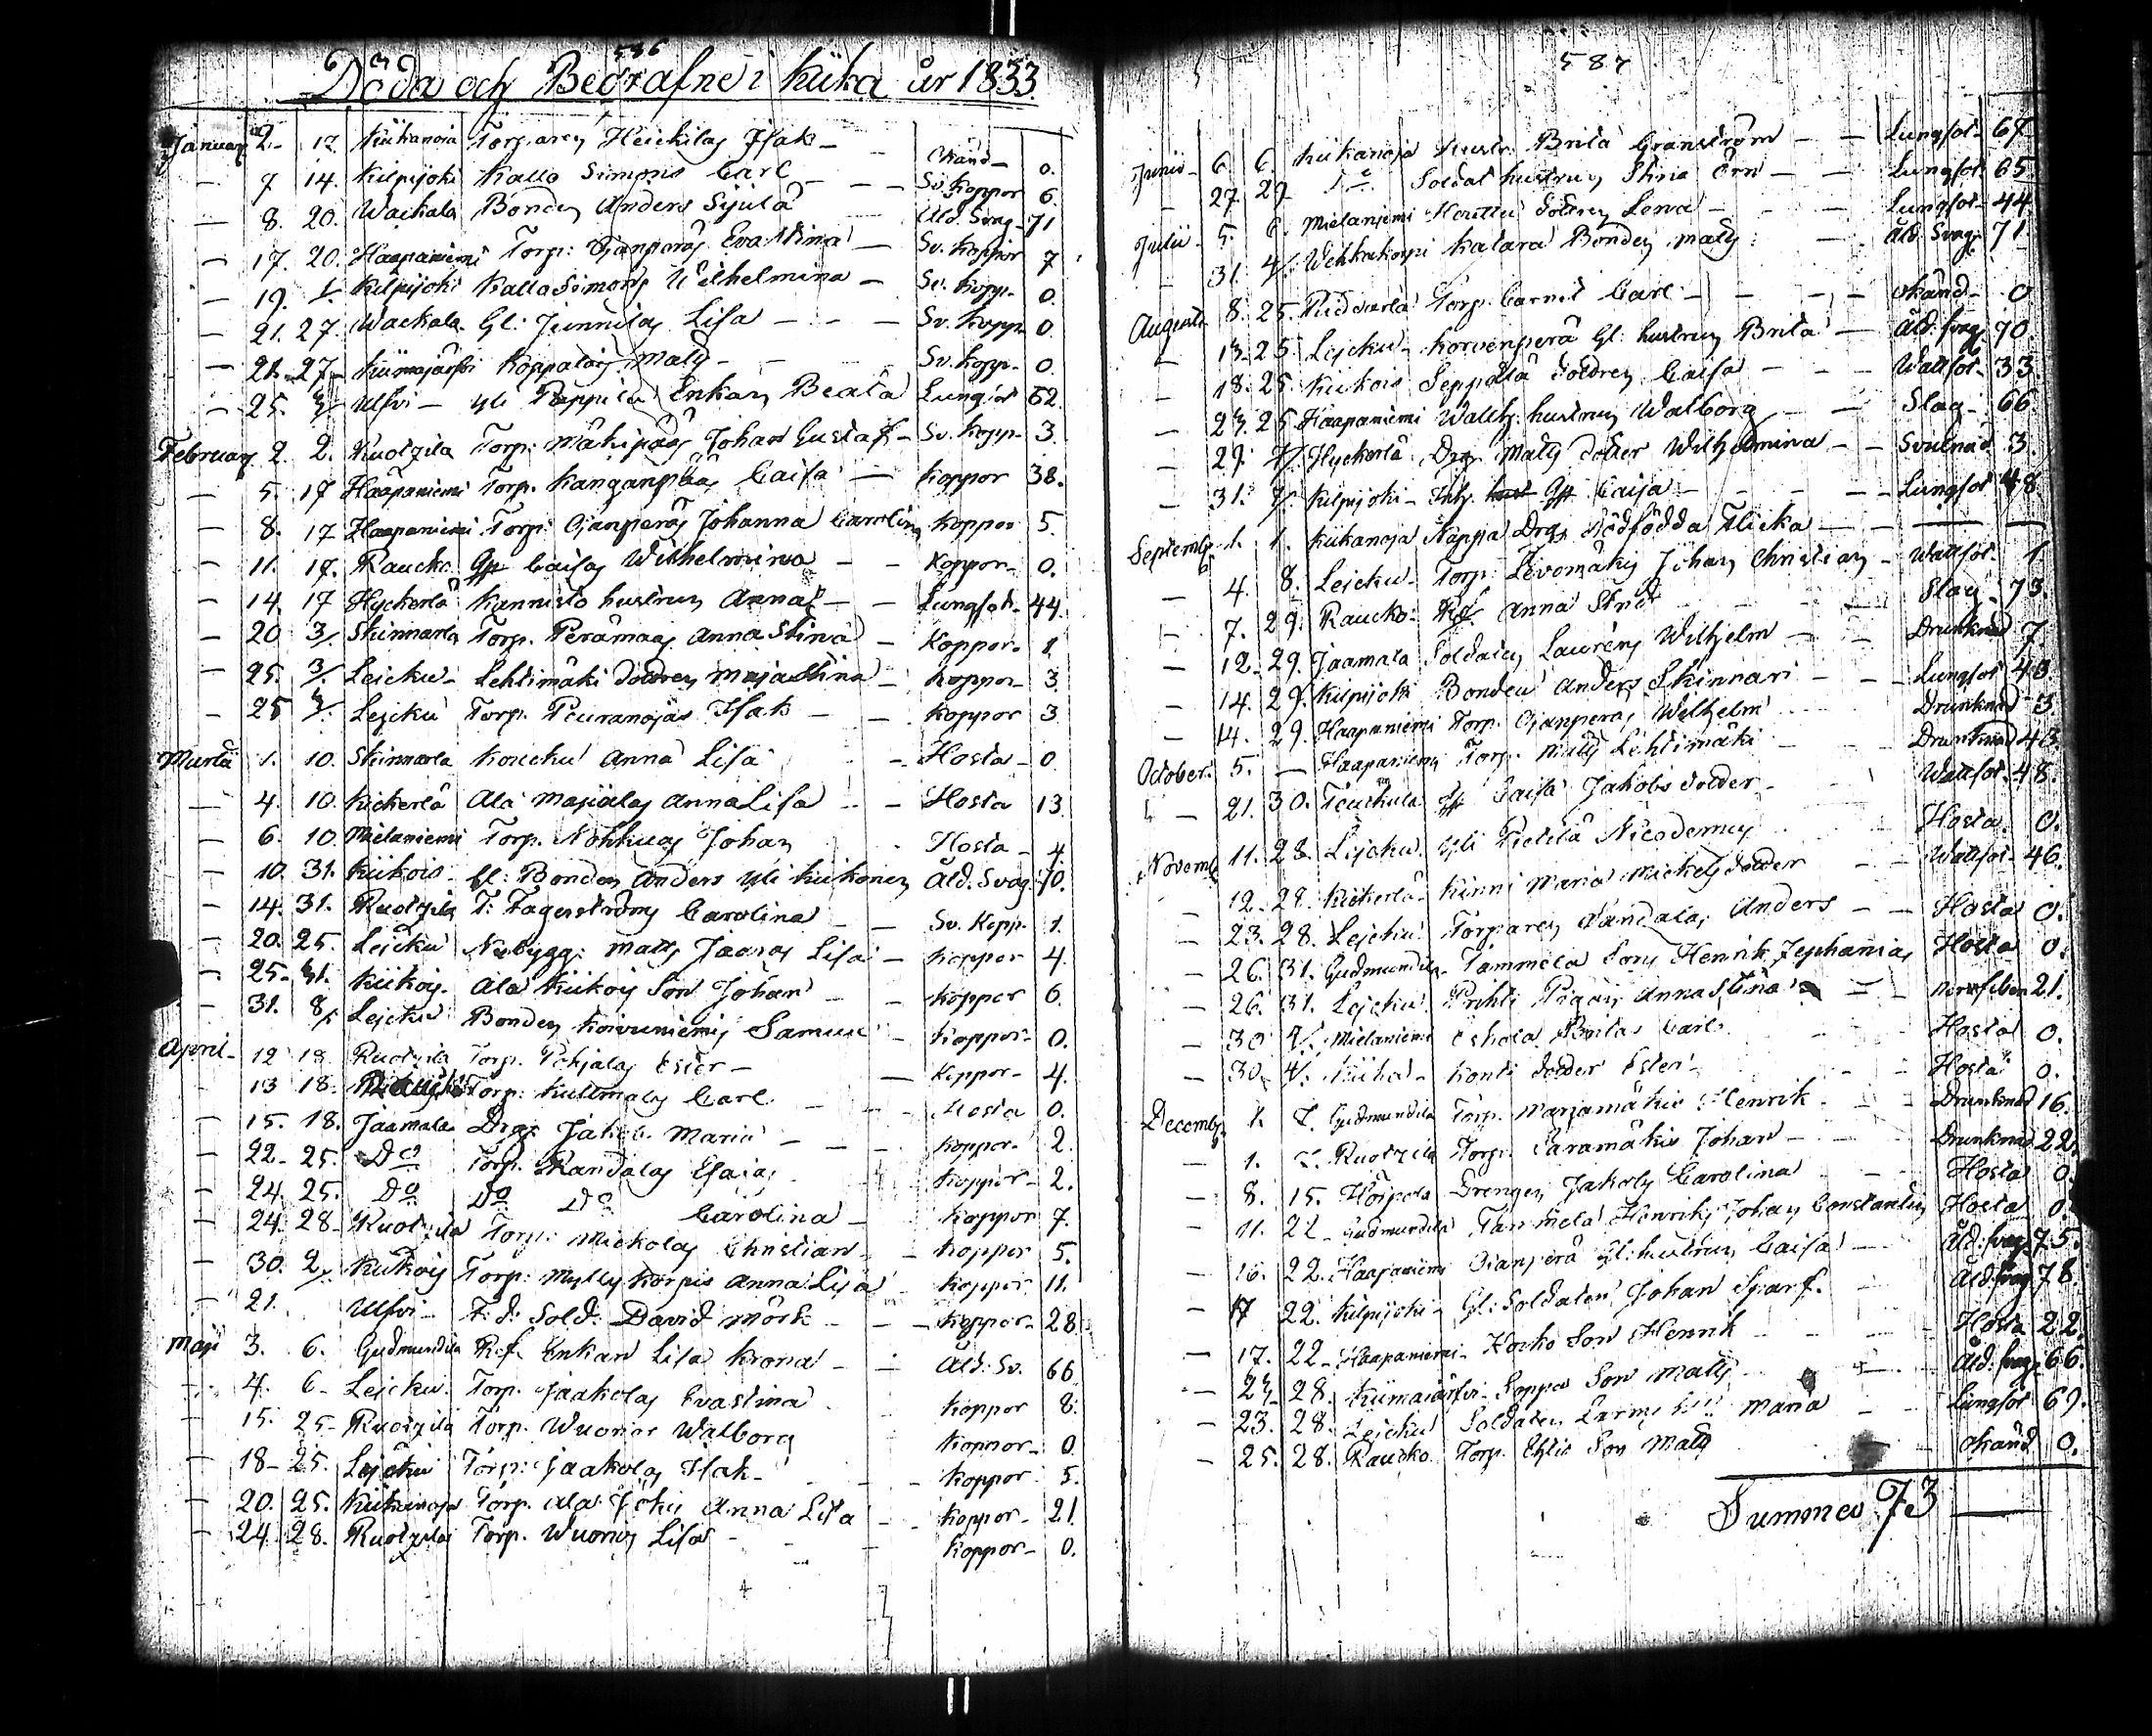 586
Döda och Begrafne i Kiika år 1833.
Januar. 2. 12. Kiikanoja Torparen Heickilas Isak - Okänd - 0.
- 7 14. Kilpijoki Kallo Simons Carl - Sv. Koppor 6.
- 8. 20. Wackala Bonden Anders Sijula Åld. Svag. 71
- 17. 20. Haapaniemi Torp: Ojanperäs Eva Stina - Sv. Koppor 7
- 19. Kilpijoki Kallo Simons Wilhelmina - Sv. Kopp. 0.
- 21. 27. Wackala Gl: Junnilas Lisa - Sv. Kopp. 0.
- 21. 27. Kiimajärfvi Koppalas Matts - Sv. Kopp. 0.
- 25. Ulfvi - Yli Pappila Enkan Beata Lungsot 62.
Februarj 2. 2. Ruotzila Torp: Mäkipääs Johan Gustaf - Sv. Kopp. 3.
- 5. 17 Haapaniemi Torp. Kanganpääs Caisa - Koppor 38.
- 8. 17 Haapaniemi Torp: Ojanperäs Johanna Carolina Koppor 5.
- 11. 17. Raucko Caisas Wilhelmina - Koppor - 0.
- 14. 17 Hyckerlä Kannisto hustrun Anna - Lungsot - 44.
- 20 3/ Skinnarla Torp. Perämaas Anna Stina - Koppor. 1.
- 25. 3/. Leicku - Lehtimäki dottren Maja Stina - Koppor - 3.
- 25 Leicku Torp. Peuranojas Isak - Koppor 3
Martii 1. 10. Skinnarla Koucku Anna Lisa - Hosta - 0
- 4. 10. Kickerlä Ala Marjalas Anna Lisa - Hosta 13
- 6. 10. Mielaniemi Torp. Nohkuas Johan Hosta - 4
- 10. 31. Kiikois - Gl: Bonden Anders Yli Kiikonen Åld. Svag. 70.
- 14. 31. Ruotzila T: Fagerströms Carolina - Sv. Kopp. 1.
- 20. 25. Leicku Nybygg: Matts Jaaras Lisa - Koppor 4.
- 25. 31. Kiikois. Ala Kiikois Son Johan - Koppor 6.
- 31. 8/. Leicku Bonden Koivuniemis Samuel - Koppor - 0.
April - 12 18 Ruotzila Torp. Pohjalas Ester - Koppor - 4.
13 18. Torp: Kullmalas Carl - Hosta 0.
- 15. 18. Jaamala Drg: Jakobs Maria - Koppor - 2.
- 22. 25. Do Torp. Randalas Esaias Koppor - 2.
- 24. 25. Do Do Do Carolina - Koppor 7.
- 24. 28. Ruotzila Torp: Mickolas Christian - Koppor 5.
- 30. 2/. Kiikois Torp: Myllykorpis Anna Lisa Koppor 11.
- 21. Ulfvi - F. d: Sold: David Mörk - Koppor - 28.
Maji 3. 6. Gudmundila R.f. Enkan Lisa Krona - Åld: Sv. 66
- 4. 6 - Leicku. Torp. Jaakolas Eva Stina Koppor 8.
- 15. 25 - Ruotzila Torp. Wuorios Walborg Koppor - 0
- 18 - 25. Leicku Torp: Jaakolas Isak - Koppor 5.
- 20. 25. Kiikanoja Torp. Ala Jokis Anna Lisa - Koppor - 21.
- 24. 28. Ruotzila Torp. Wuoris Lisa - Koppor - 0.
587
Junii - 6 6. Kiikanoja Hustr. Brita Granström - Lungsot - 67
- 27. 29 Do Soldat hustrun Stina Örn - Lungsot 65.
Julii - 5. 6. Mielaniemi Houttu dottren Lena - Lungsot - 44
- 31. 4/. Wehkakorpi Katara Bonden Matts: - Åld. Svag. 71
Augusti 8. 25. Torp. Carl - Okänd - 0
- 13. 25 Leicku - Korvenperä Gl: hustrun Brita - Åld: svag. 70.
- 18. 25 Kiikois Seppälä dottren Caisa - Wattsot - 33.
- 23. 25 Haapaniemi Wallh. hustrun Walborg - Slag - 66.
- 29. Hyckerlä Drg: Matts dotter Wilhelmina - Svulnad 3.
- 31. Kilpijoki - Inh. Caisa - Lungsot 48
Septemb. 1. 1. Kiikanoja Nappa Drgs dödfödda Flicka - -
- 4. 8. Leicku - Torp: Levomäkis Johan Christian - Wattsot. 1
- 7. 29. Raucko Anna - Slag - 73.
- 12. 29. Jaamala Soldaten Laurens Wilhelm - Drunknad 7
- 14. 29. Kilpijoki Bonden Anders Skinnari - Lungsot 43
- 14. 29. Haapaniemi Torp. Ojanperas Wilhelm Drunknad 3.
October. 5. - Haapaniemi Torp. Matts Lehtimäki - Drunknad 43
- 21. 30. Caisa Jakobs dotter - Wattsot. 48.
Novemb. 11. 28. Leicku. Yli Pietilä Nicodemus Hosta. 0.
- 12. 28. Kickerlä - Kinni Maria Mickels dotter - Wattsot - 46.
- 23. 28. Leicku Torparen Randalas Anders - Hosta 0.
- 26. 31. Gudmundila - Tammela Sons Henrik Zephanias Hosta 0.
- 26. 31. Leicku Prihti Pigan Anna Stina - Nervfeber 21.
- 30 Mielaniemi Eskola Britas Carl - Hosta 0.
- 30. Konti dotter Ester - Hosta 0.
Decemb. 1. Gudmundila Torp. Marjamäkis Henrik - Drunknad 16.
- 1. Ruotzila Torp. Saramäkis Johan - Drunknad 22.
- 8. 15. Höipola Drengen Jakobs Carolina - Hosta 0.
- 11. 22 - Gudmundila Tammela Henriks Johan Constantin Hosta 0.
- 16. 22. Haapaniemi Ojanperä Gl: hustrun Caisa - Åld. svag. 75.
- 17 22. Kilpijoki - Gl: Soldaten Johan Skarf. - Åld: svag. 78.
- 17. 22 - Haapaniemi - Son Henrik - Hosta 22.
- 28. Kiimajärfvi - Soppa Son Matts - Åld. svag. 66.
- 23. 28. Leicku Soldaten Maria - Lungsot 69.
- 25. 28. Raucko Torp. Son Matts - Okänd 0.
Summa 73